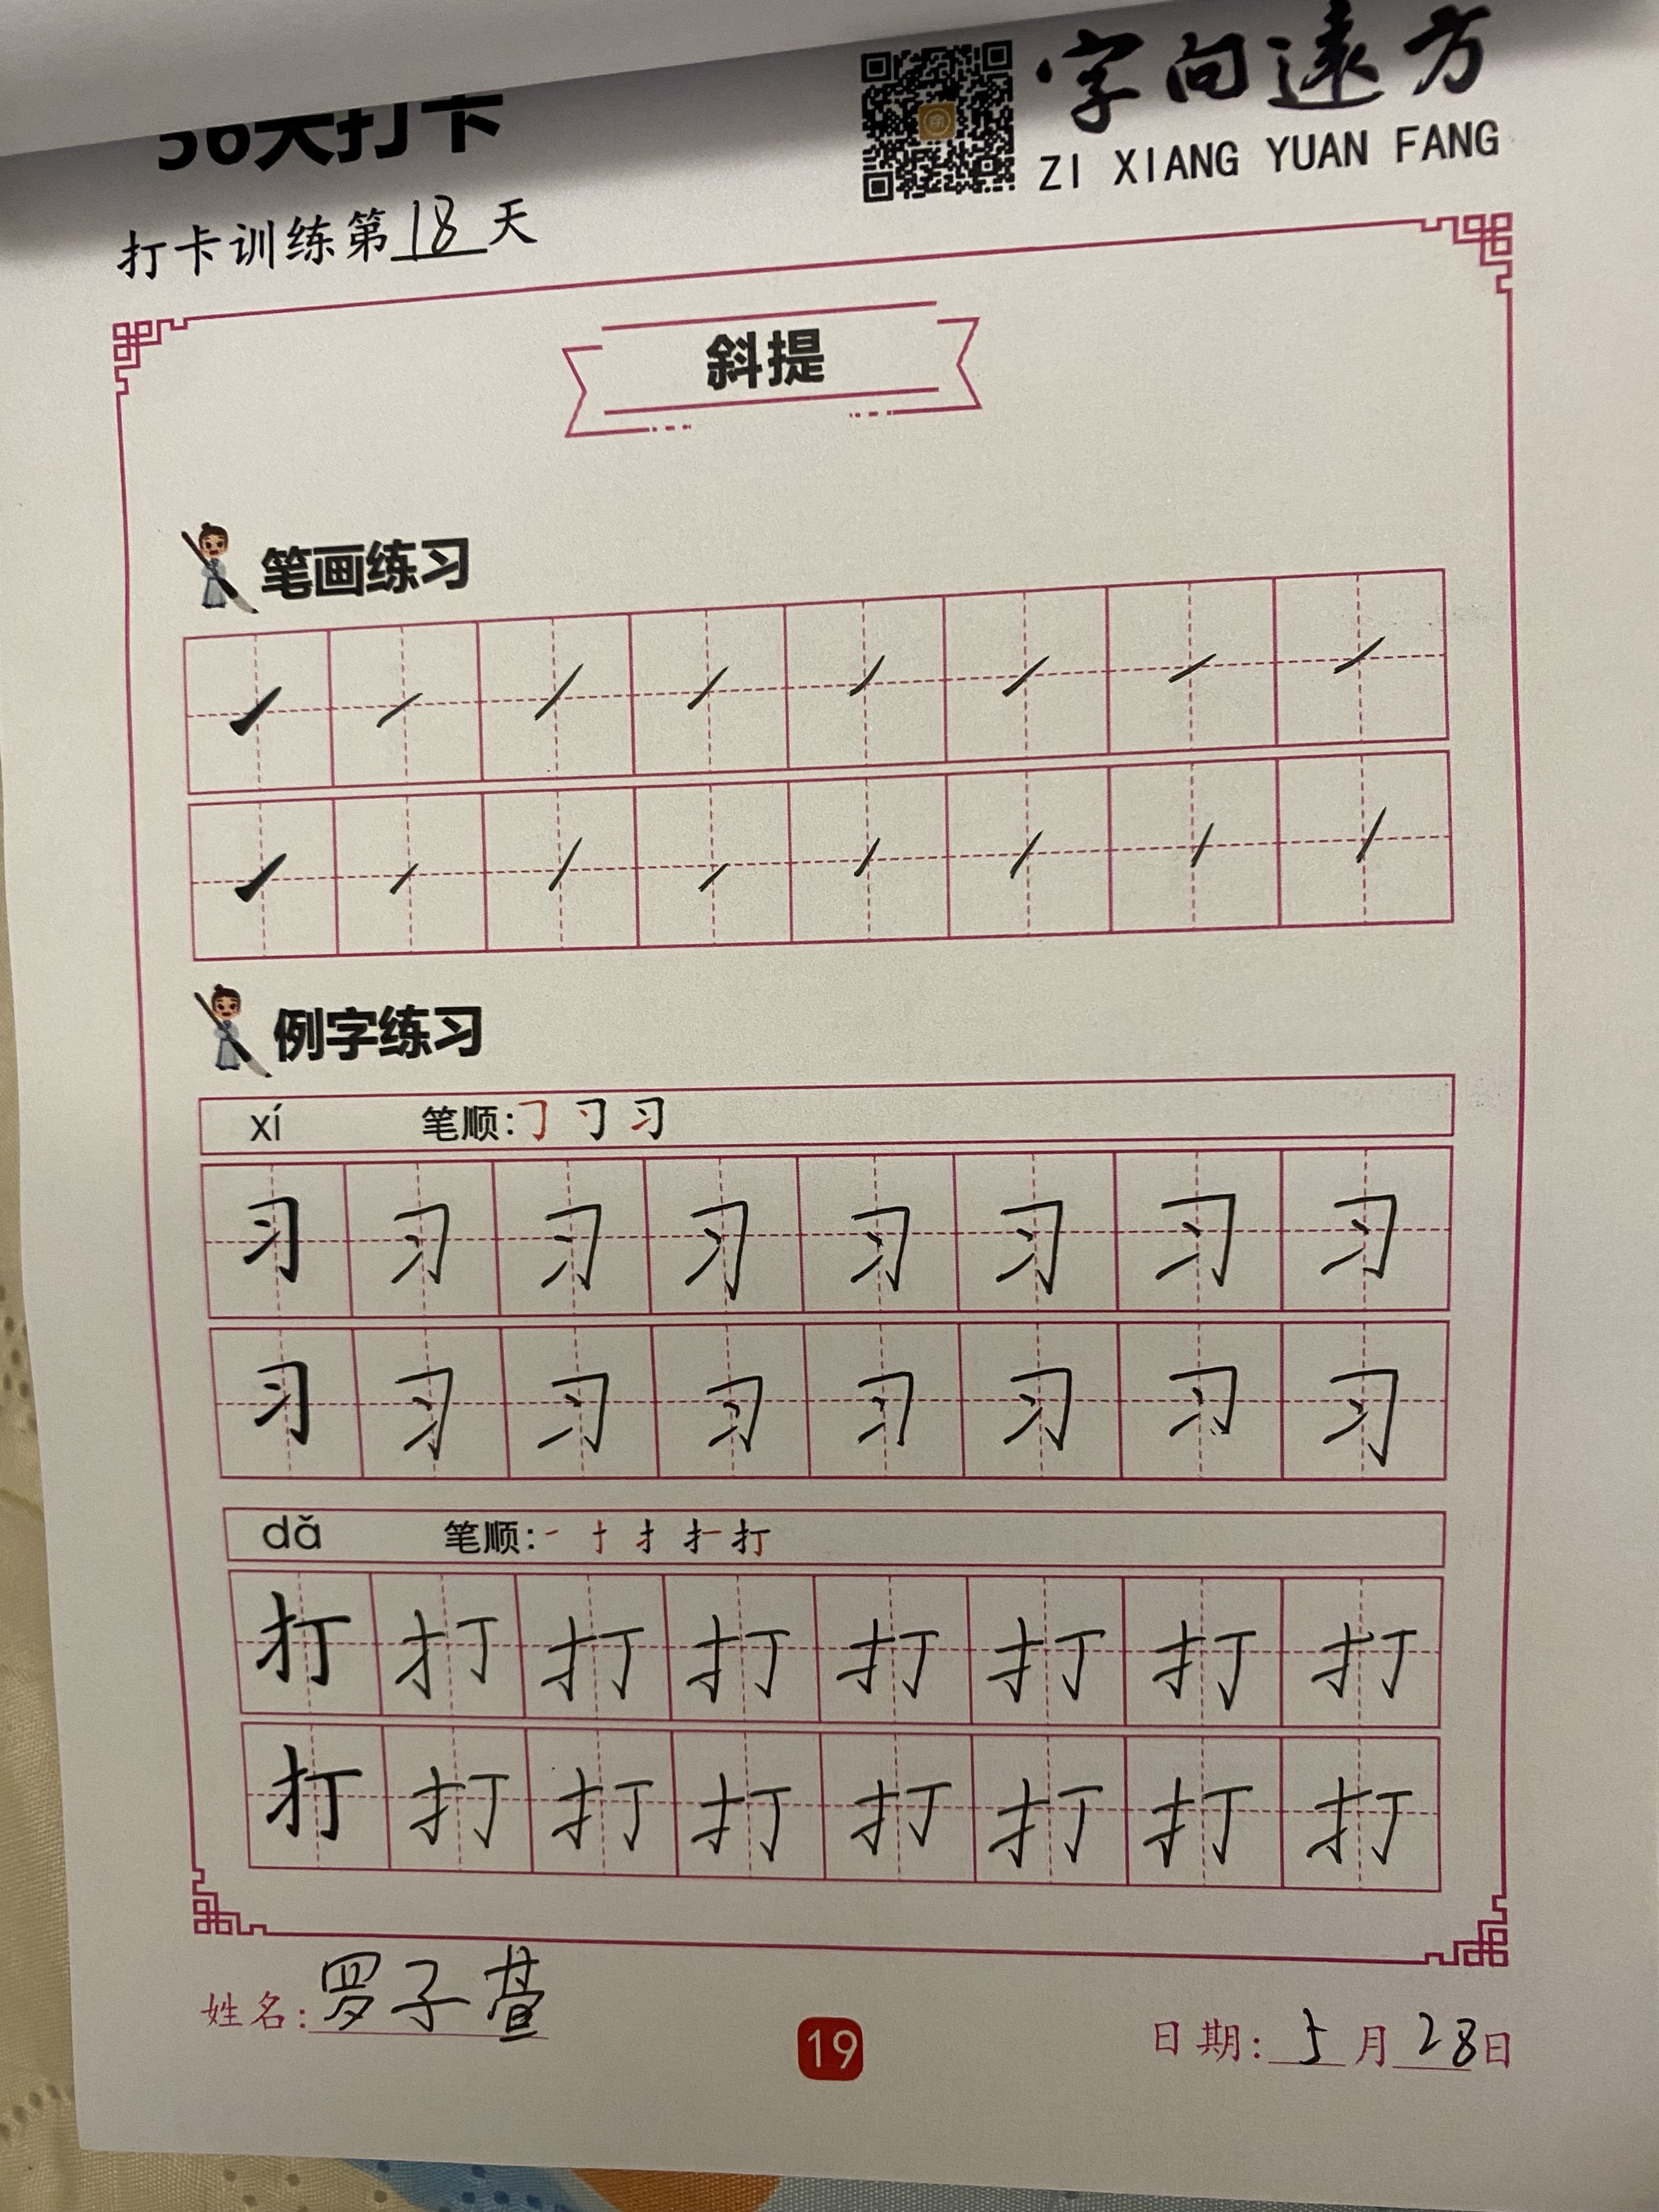 36天打卡
字向遠方
ZI XIANG YUAN FANG
打卡训练第18天
斜提
笔画练习
例字练习
xí 笔顺: 习
习 习 习 习 习 习 习 习
习 习 习 习 习 习 习 习
dǎ 笔顺: 一 扌 打
打 打 打 打 打 打 打 打
打 打 打 打 打 打 打 打
姓名: 罗子萱
19
日期: 5月28日